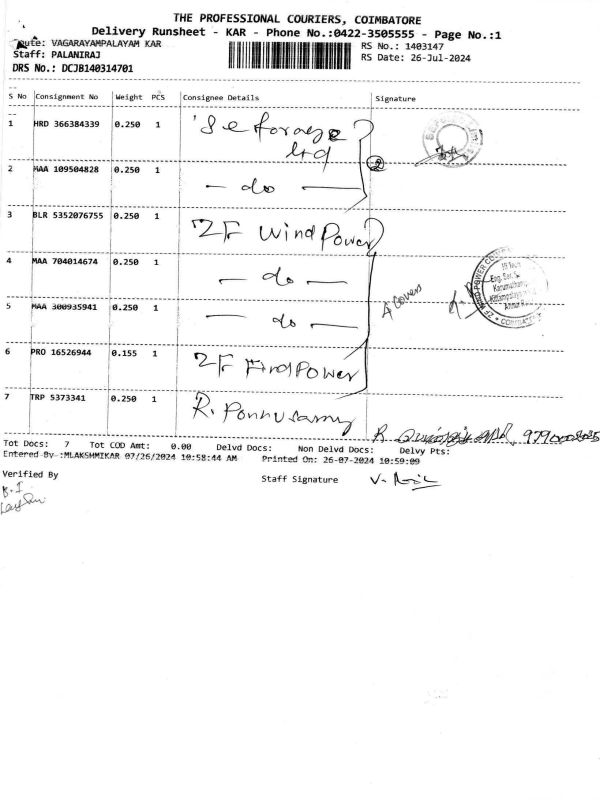 THE PROFESSIONAL COURIERS, COIMBATORE
Delivery Runsheet - KAR - Phone No.:0422-3505555 - Page No.:1
Route: VAGARAYAMPALAYAM KAR
RS No.: 1403147
Staff: PALANIRAJ
RS Date: 26-Jul-2024
DRS No.: DCJB140314701
S No Consignment No Weight PCS Consignee Details Signature
1 HRD 366384339 0.250 1
ltd
2 MAA 109504828 0.250 1 — do — 2
3 BLR 5352076755 0.250 1 ZF Wind Power
4 MAA 704014674 0.250 1 — do —
4 Covers
5 MAA 300935941 0.250 1 — do —
6 PRO 16526944 0.155 1 ZF Power
7 TRP 5373341 0.250 1 R. Ponnusamy
Tot Docs: 7 Tot COD Amt: 0.00 Delvd Docs: Non Delvd Docs: Delvy Pts:
Entered By :MLAKSHMIKAR 07/26/2024 10:58:44 AM Printed On: 26-07-2024 10:59:09
Verified By
Staff Signature